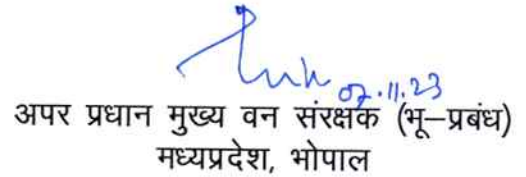 07.11.23
अपर प्रधान मुख्य वन संरक्षक (भू–प्रबंध)
मध्यप्रदेश, भोपाल